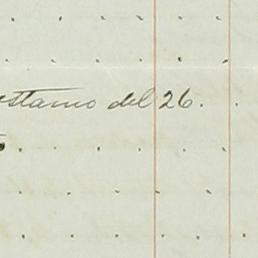 estamo del 26.